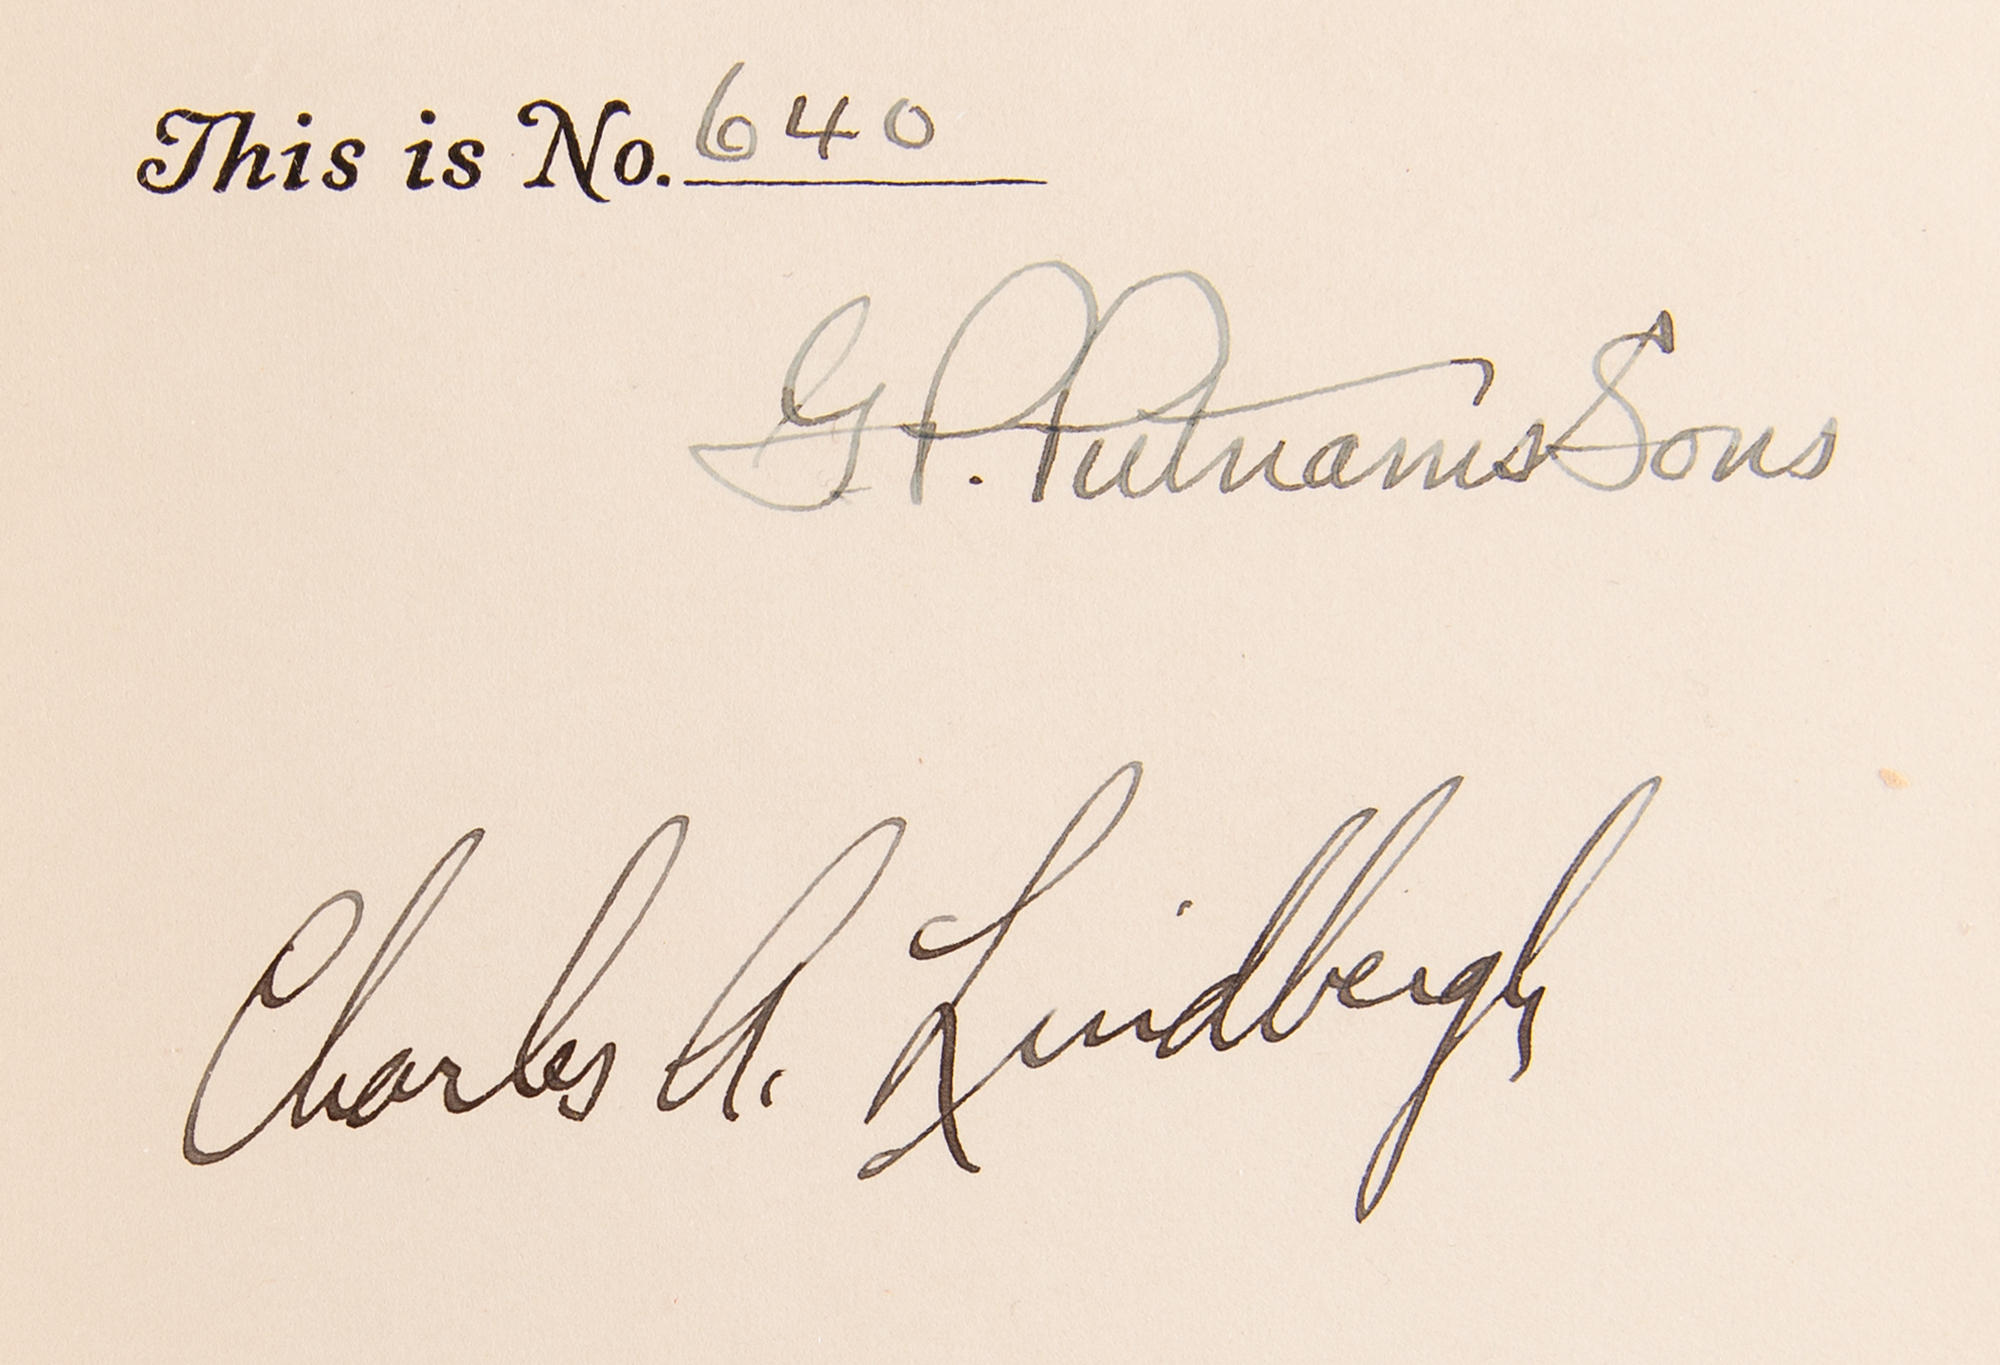 This is No. 640
G. P. Putnams Sons
Charles A. Lindbergh